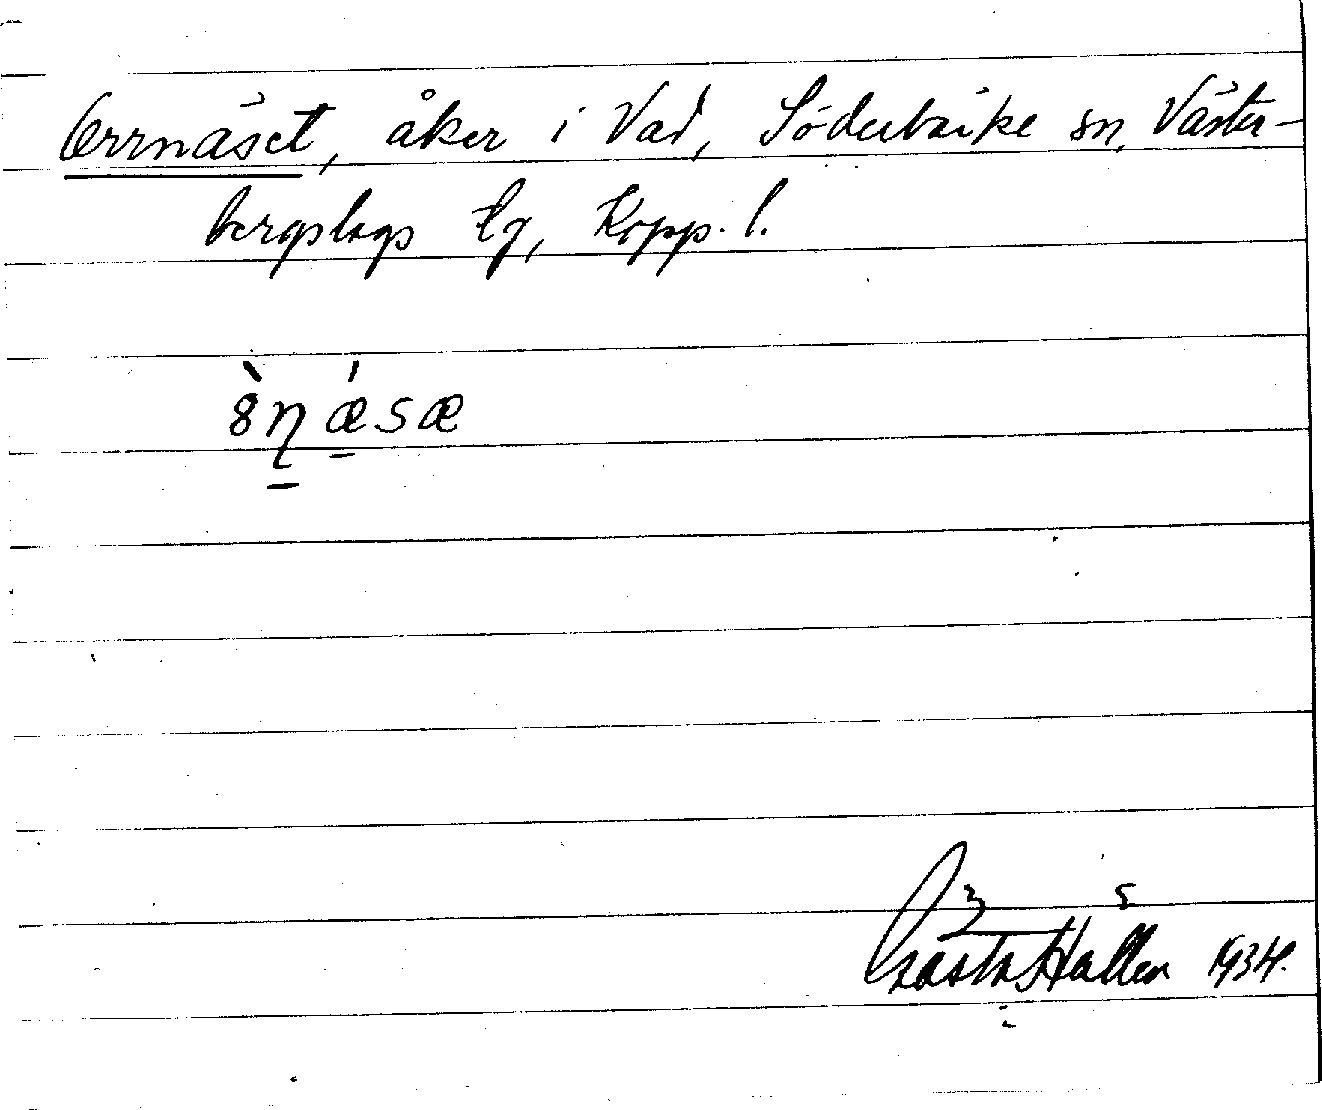 Orrnäset, åker i Vad, Söderbärke sn, Väster-
bergslags tg, Kopp. l.
ö̀ṉǽ̱sæ
Gösta Hallén 1934.